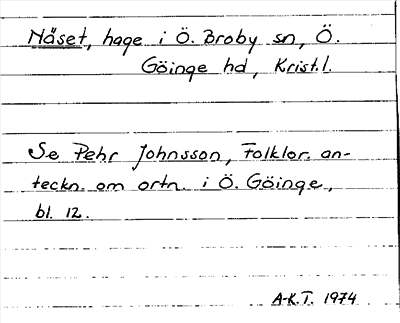 Näset, hage i Ö. Broby sn, Ö.
Göinge hd, Krist.l.
Se Pehr Johnsson, Folklor. an-
teckn. om ortn. i Ö. Göinge,
bl. 12.
A-K.T. 1974